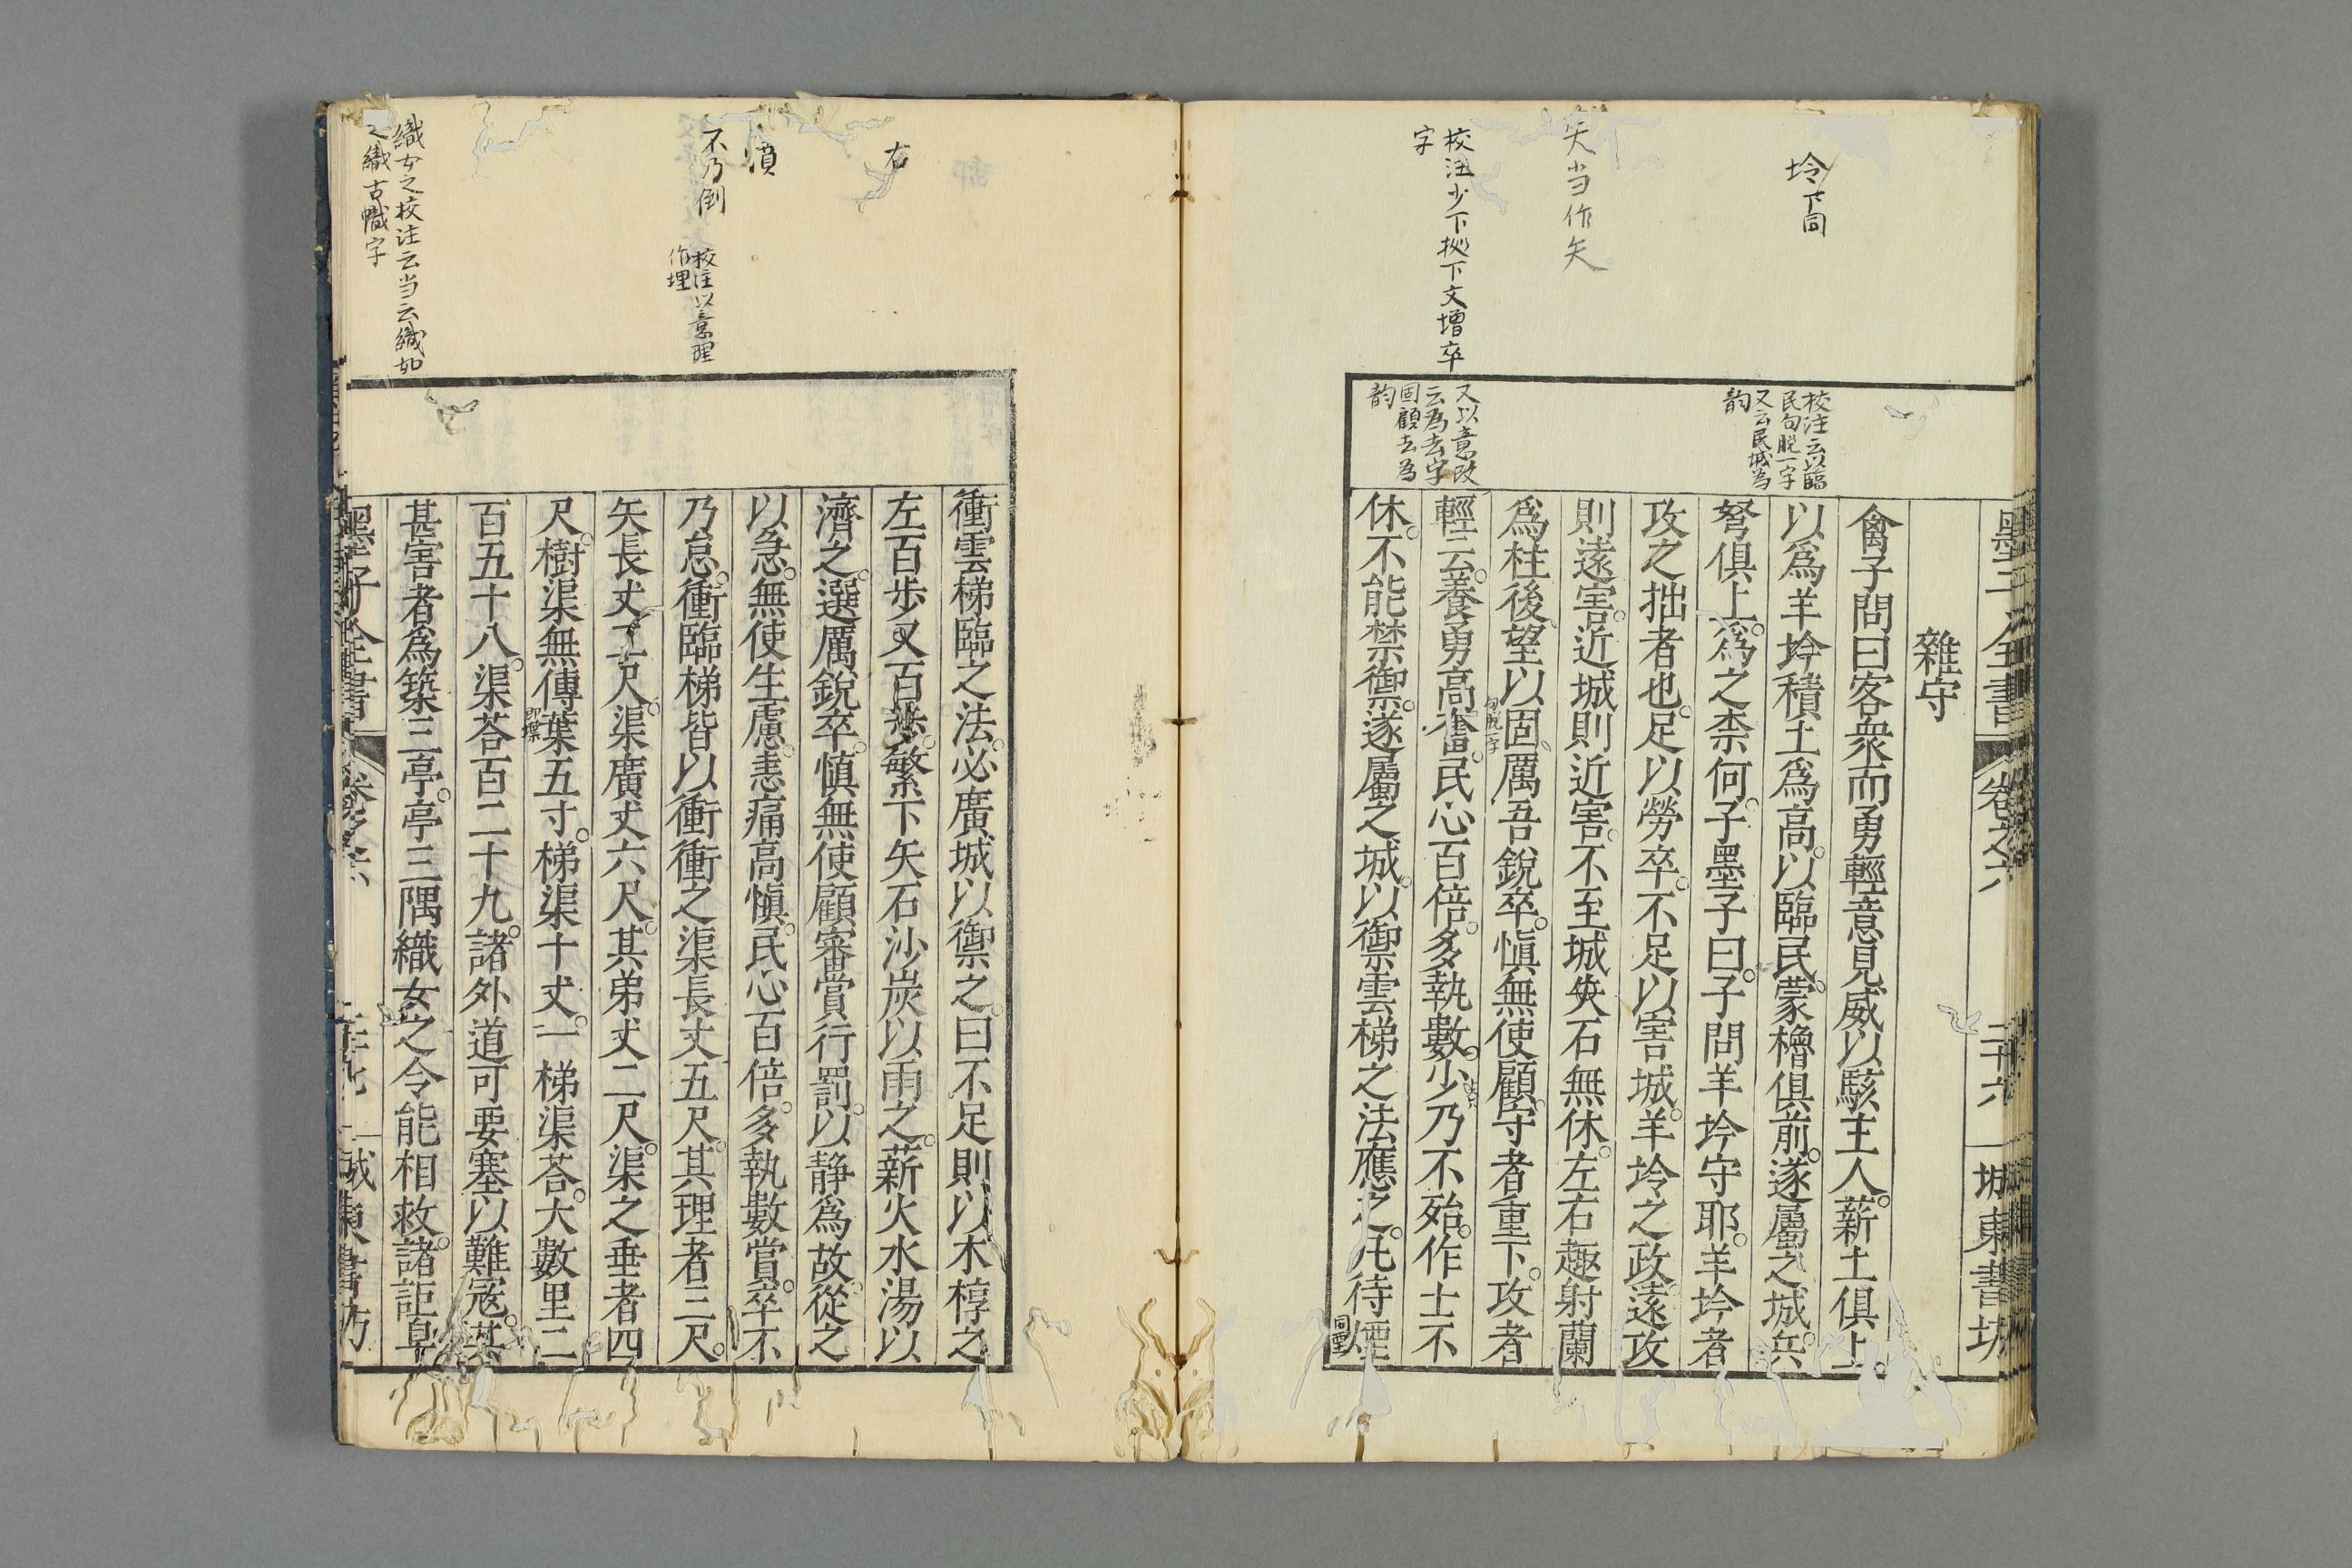 坽下同
矢当作矢
校注少下捝下文增卒
字
校注云以臨
民句脱一字
又云民城為
韵
又以意改
云為去字
固顧去為
韵
墨子全書 卷之六 二十六 城東書坊
雜守
禽子問曰客衆而勇輕意見威以駭主人薪土俱上
以爲羊坅積土爲高以臨民蒙櫓俱前遂屬之城兵
弩俱上爲之柰何子墨子曰子問羊坅守耶羊坅者
攻之拙者也足以勞卒不足以害城羊坽之政遠攻
則遠害近城則近害不至城矢石無休左右趣射蘭
爲柱後望以固厲吾銳卒愼無使顧守者重下攻者
句脱一字
輕云養勇高奮民心百倍多執數少乃不殆作土不
休不能禁禦遂屬之城以禦雲梯之法應之凡待煙
右
濆
不乃倒
校注以意理
作埋
織女之校注云当云織如
之織古幟字
衝雲梯臨之法必廣城以禦之曰不足則以木椁之
左百步又百步繁下矢石沙炭以雨之薪火水湯以
濟之選厲銳卒愼無使顧審賞行罰以静爲故從之
以急無使生慮恚痛高愼民心百倍多執數賞卒不
乃怠衝臨梯皆以衝衝之渠長丈五尺其理者三尺
矢長丈二尺渠廣丈六尺其弟丈二尺渠之垂者四
尺樹渠無傅葉五寸梯渠十丈一梯渠荅大數里二
即堞
百五十八渠荅百二十九諸外道可要塞以難寇其
甚害者爲築三亭亭三隅織女之令能相救諸詎阜
墨子全書 卷之六 二十七 城東書坊